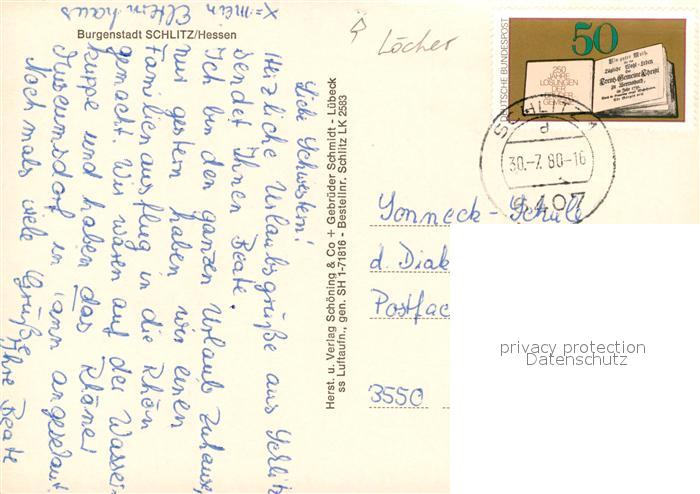 x = mein
Elternhaus
Burgenstadt SCHLITZ/Hessen
Löcher
DEUTSCHE BUNDESPOST
50
250
JAHRE
LOSUNGEN
DER
SCHLITZ 1
d
30.-7.80-16
6407
Liebe Schwestern!
Herzliche Urlaubsgrüße aus Schlitz
sendet Ihnen Beate.
Ich bin den ganzen Urlaub zuhause,
nur gestern haben wir einen
Familienausflug in die Rhön
gemacht. Wir waren auf der Wasser-
kuppe und haben das Rhöner
Museumsdorf in Tann angeschaut.
Nochmals viele Grüße
Ihre Beate
Herst. u. Verlag Schöning & Co + Gebrüder Schmidt - Lübeck
ss Luftaufn., gen. SH 1-71816 - Bestellnr. Schlitz LK 2583
Sonneck-Schule
d. Diak
Postfac
3550
privacy protection
Datenschutz